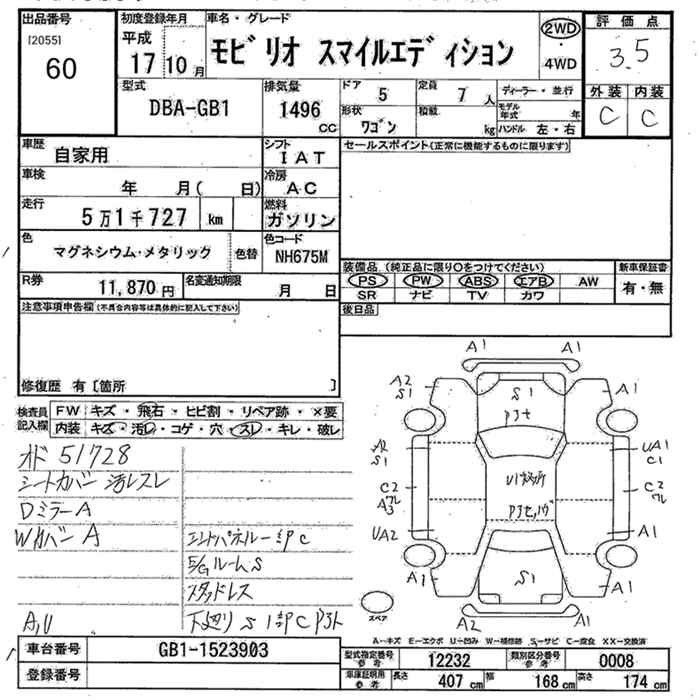 出品番号
[2055]
60
初度登録年月
平成
17 10 月
車名・グレード
モビリオ スマイルエディション
2WD
・
4WD
評価点
3.5
外装 内装
C C
型式
DBA-GB1
排気量
1496
CC
ドア
5
定員
7 人
形状
ワゴン
積載
kg
ディーラー・並行
モデル
年式 年
ハンドル 左・右
車歴
自家用
シフト
IAT
セールスポイント(正常に機能するものに限ります)
車検
年 月( 日)
冷房
AC
走行
5万1千727 km
燃料
ガソリン
色
マグネシウム・メタリック
色替
色コード
NH675M
R券
11,870 円
名変通知期限
月 日
装備品 (純正品に限り○をつけてください)
PS PW ABS エアB AW
SR ナビ TV カワ
新車保証書
有・無
後日品
注意事項申告欄(不具合内容等は具体的に記入して下さい)
修復歴 有〔箇所 〕
検査員
記入欄
FW キズ・飛石・ヒビ割・リペア跡・×要
内装 キズ・汚レ・コゲ・穴・スレ・キレ・破レ
オド 51728
シートカバー 汚レスレ
Dミラー A
Wカバー A
コアパネル一部PC
E/Gルーム S
スタッドレス
A,U
下廻り S 1部PC
A1 A1
A2
S1
S1
A1
A2
S1
UA1
C1
C2
ワレ
A3
C2
ワレ
UA2
A1
A1
S1
A1
スペア
A2
A1
A-キズ E-エクボ U-凹み W-補修跡 S-サビ C-腐食 XX-交換済
車台番号
GB1-1523903
登録番号
型式指定番号
参考
12232
類別区分番号
参考
0008
車庫証明用
参考
長さ 407 cm 幅 168 cm 高さ 174 cm